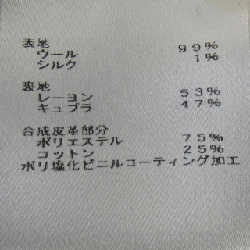 表地
ウール 99%
シルク 1%
裏地
レーヨン 53%
キュプラ 47%
合成皮革部分
ポリエステル 75%
コットン 25%
ポリ塩化ビニルコーティング加工